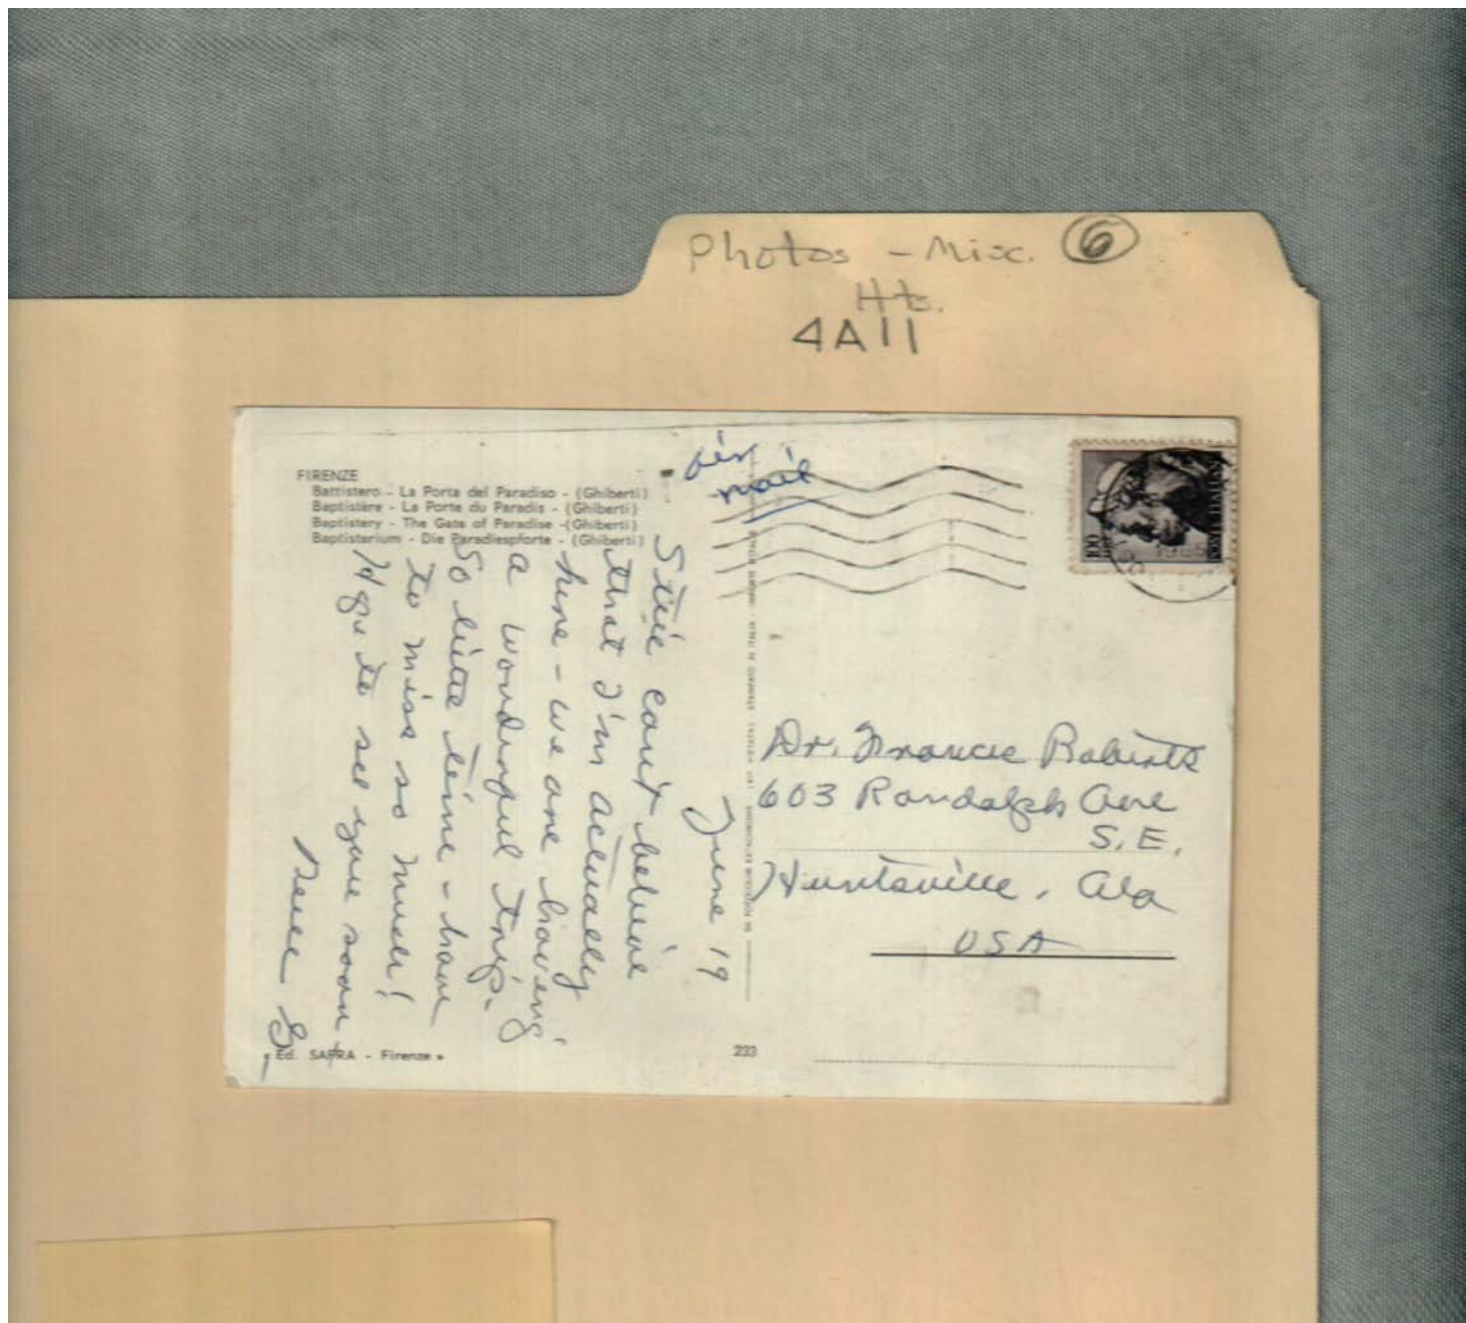 Photos - Misc. 6
Hts.
4A11
FIRENZE
Battistero - La Porta del Paradiso - (Ghiberti)
Baptistère - La Porte du Paradis - (Ghiberti)
Baptistery - The Gate of Paradise - (Ghiberti)
Baptisterium - Die Paradiespforte - (Ghiberti)
air
mail
100
POSTE ITALIANE
1965
June 19
Still can't believe
that I'm actually
here - we are having
a wonderful trip.
So little time - have
to miss so much!
Hope to see you soon
Dr. Francis Roberts
603 Randolph Ave
S.E.
Huntsville, Ala
USA
« Ed. SAFRA - Firenze »
233